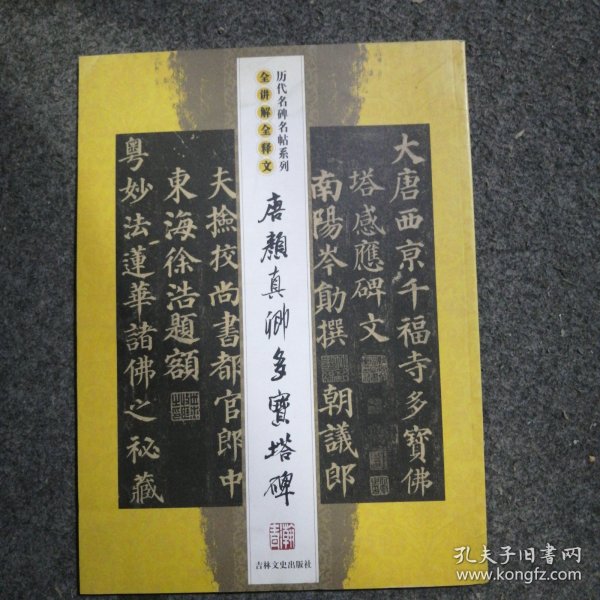 历代名碑名帖系列
全讲解全释文
唐颜真卿多寶塔碑
吉林文史出版社
大唐西京千福寺多寶佛
塔感應碑文
南陽岑勛撰 朝議郎
夫撿挍尚書都官郎中
東海徐浩題額
粤妙法蓮華諸佛之秘藏
孔夫子旧书网
www.kongfz.com